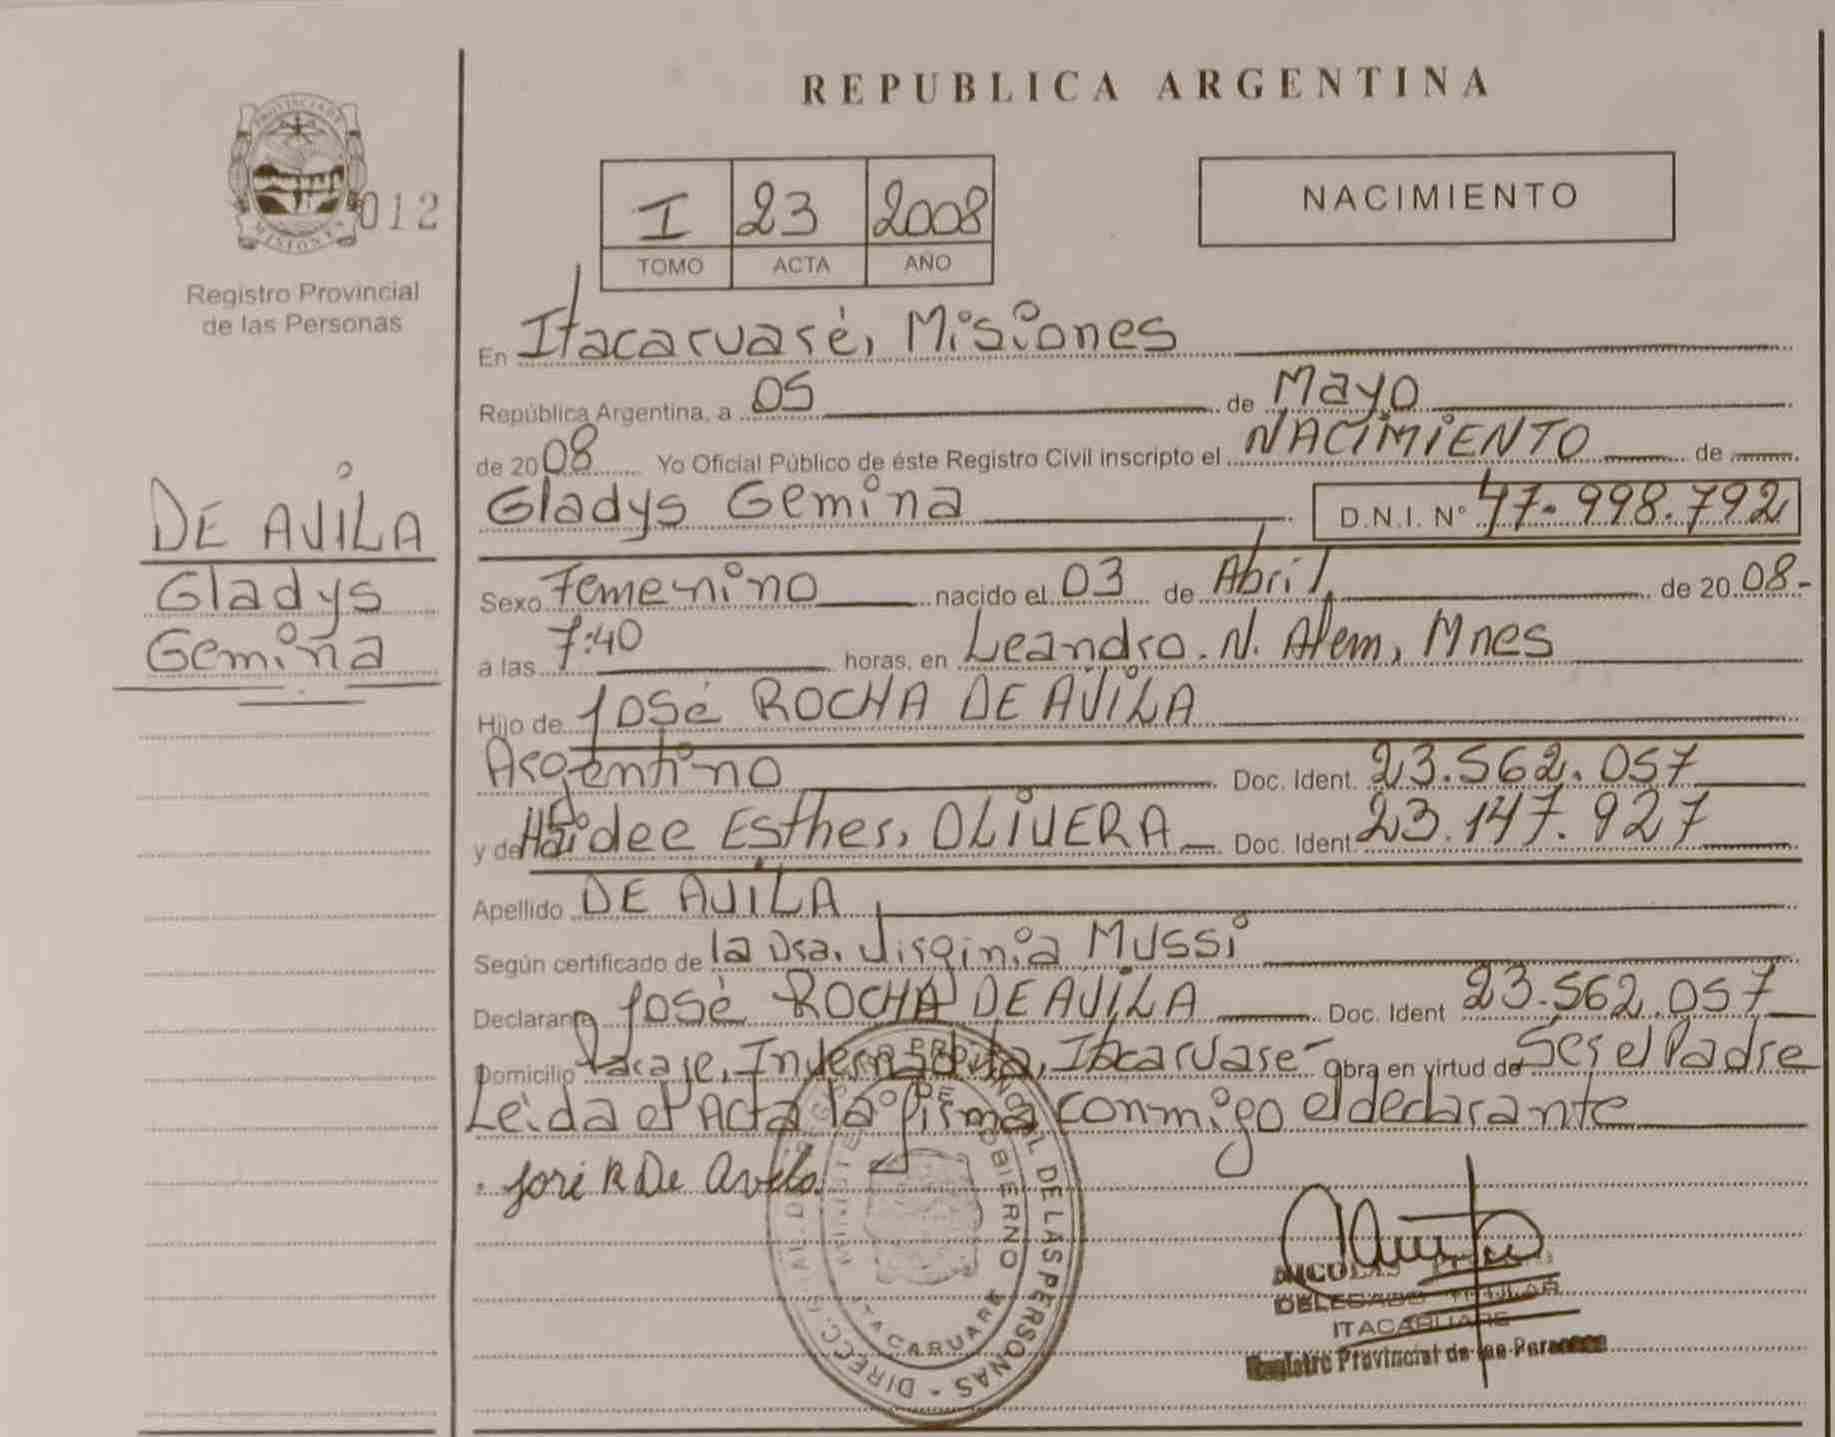 REPUBLICA ARGENTINA
PROVINCIA DE
MISIONES
012
Registro Provincial
de las Personas
I 23 2008
TOMO ACTA AÑO
NACIMIENTO
DE AVILA
Gladys
Gemina
En Itacaruaré, Misiones
República Argentina, a 05 de Mayo
de 2008 Yo Oficial Público de éste Registro Civil inscripto el NACIMIENTO de
Gladys Gemina D.N.I. N° 47.998.792
Sexo Femenino nacido el 03 de Abril de 2008.-
a las 7:40 horas, en Leandro. N. Alem, Mnes
Hijo de José ROCHA DE AVILA
Argentino Doc. Ident. 23.562.057
y de Haidee Esther, OLIVERA Doc. Ident. 23.147.927
Apellido DE AVILA
Según certificado de la Dra. Virginia MUSSI
Declarante José ROCHA DE AVILA Doc. Ident 23.562.057
Domicilio Itacaruare Obra en virtud de Ser el Padre
Leida el Acta la firma conmigo el declarante
José R De Avila
DIRECC. PROVINCIAL DE LAS PERSONAS
GOBIERNO
ITACARUARE
DELEGADO TITULAR
ITACARUARE
Registro Provincial de las Personas